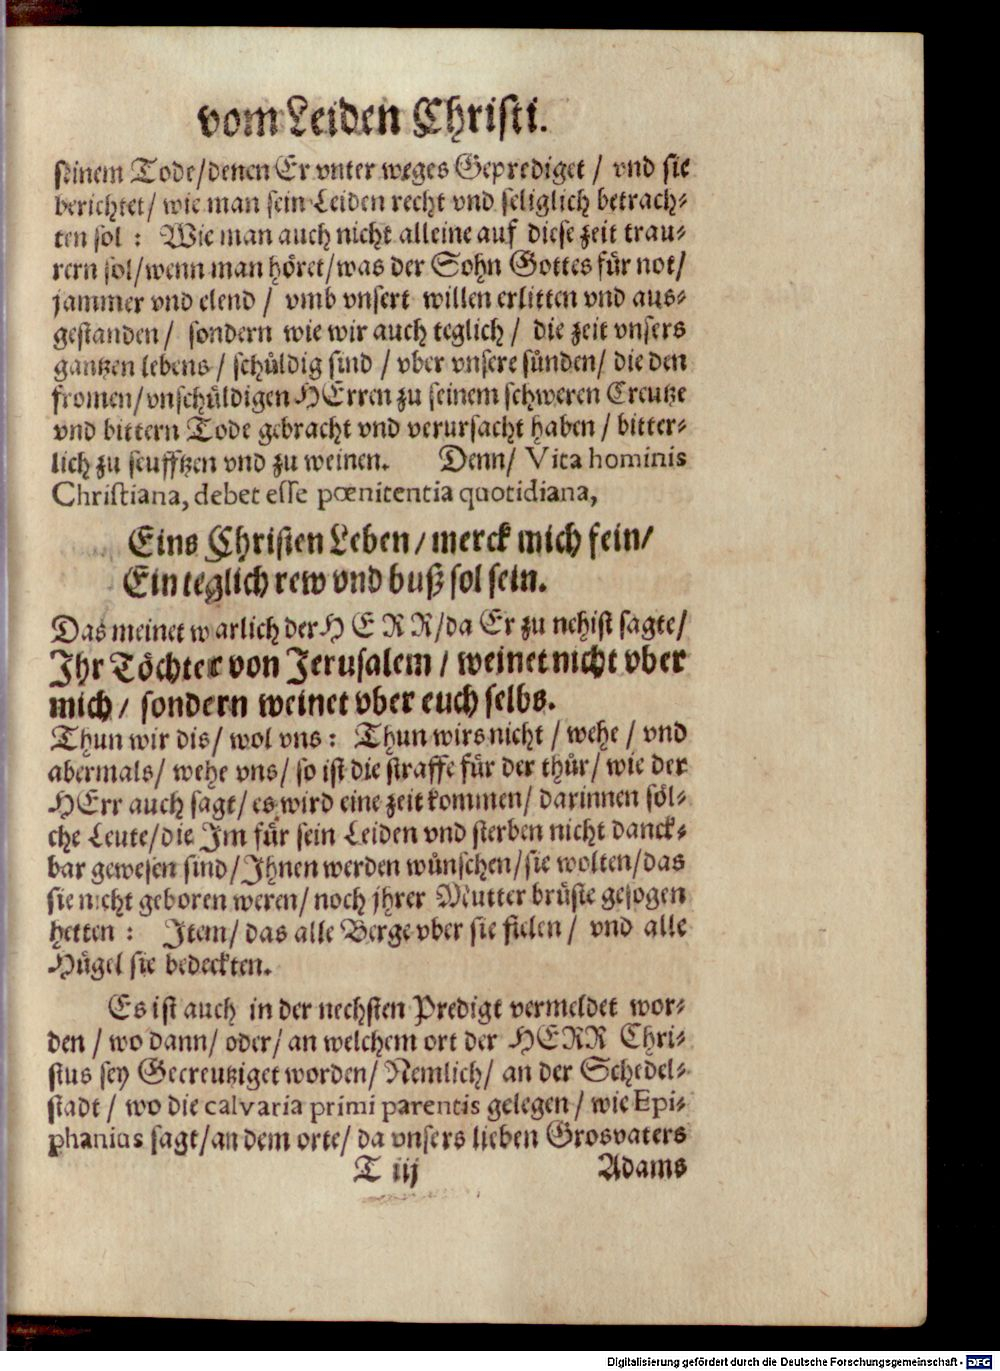 vom Leiden Christi.
seinem Tode/denen Er vnter weges Geprediget / vnd sie
berichtet/ wie man sein Leiden recht vnd seliglich betrach-
ten sol : Wie man auch nicht alleine auf diese zeit trau-
rern sol/wenn man höret/was der Sohn Gottes für not/
jammer vnd elend / vmb vnsert willen erlitten vnd aus-
gestanden / sondern wie wir auch teglich / die zeit vnsers
gantzen lebens / schüldig sind / vber vnsere sünden/ die den
fromen/vnschüldigen HErren zu seinem schweren Creutze
vnd bittern Tode gebracht vnd verursacht haben / bitter-
lich zu seufftzen vnd zu weinen. Denn/ Vita hominis
Christiana, debet esse pœnitentia quotidiana,
Eins Christen Leben / merck mich fein/
Ein teglich rew vnd buß sol sein.
Das meinet warlich der HERR/da Er zu nehist sagte/
Ihr Töchter von Jerusalem / weinet nicht vber
mich / sondern weinet vber euch selbs.
Thun wir dis/ wol vns : Thun wirs nicht / wehe / vnd
abermals/ wehe vns/ so ist die straffe für der thür/ wie der
HErr auch sagt/ es wird eine zeit kommen/ darinnen söl-
che Leute/die Im für sein Leiden vnd sterben nicht danck-
bar gewesen sind/Ihnen werden wünschen/sie wolten/das
sie nicht geboren weren/ noch jhrer Mutter brüste gesogen
hetten : Item/ das alle Berge vber sie fielen / vnd alle
Hügel sie bedeckten.
Es ist auch in der nechsten Predigt vermeldet wor-
den / wo dann/ oder/ an welchem ort der HERR Chri-
stus sey Gecreutziget worden/ Nemlich/ an der Schedel-
stadt / wo die calvaria primi parentis gelegen / wie Epi-
phanius sagt/an dem orte/ da vnsers lieben Grosvaters
T iij Adams
Digitalisierung gefördert durch die Deutsche Forschungsgemeinschaft - DFG